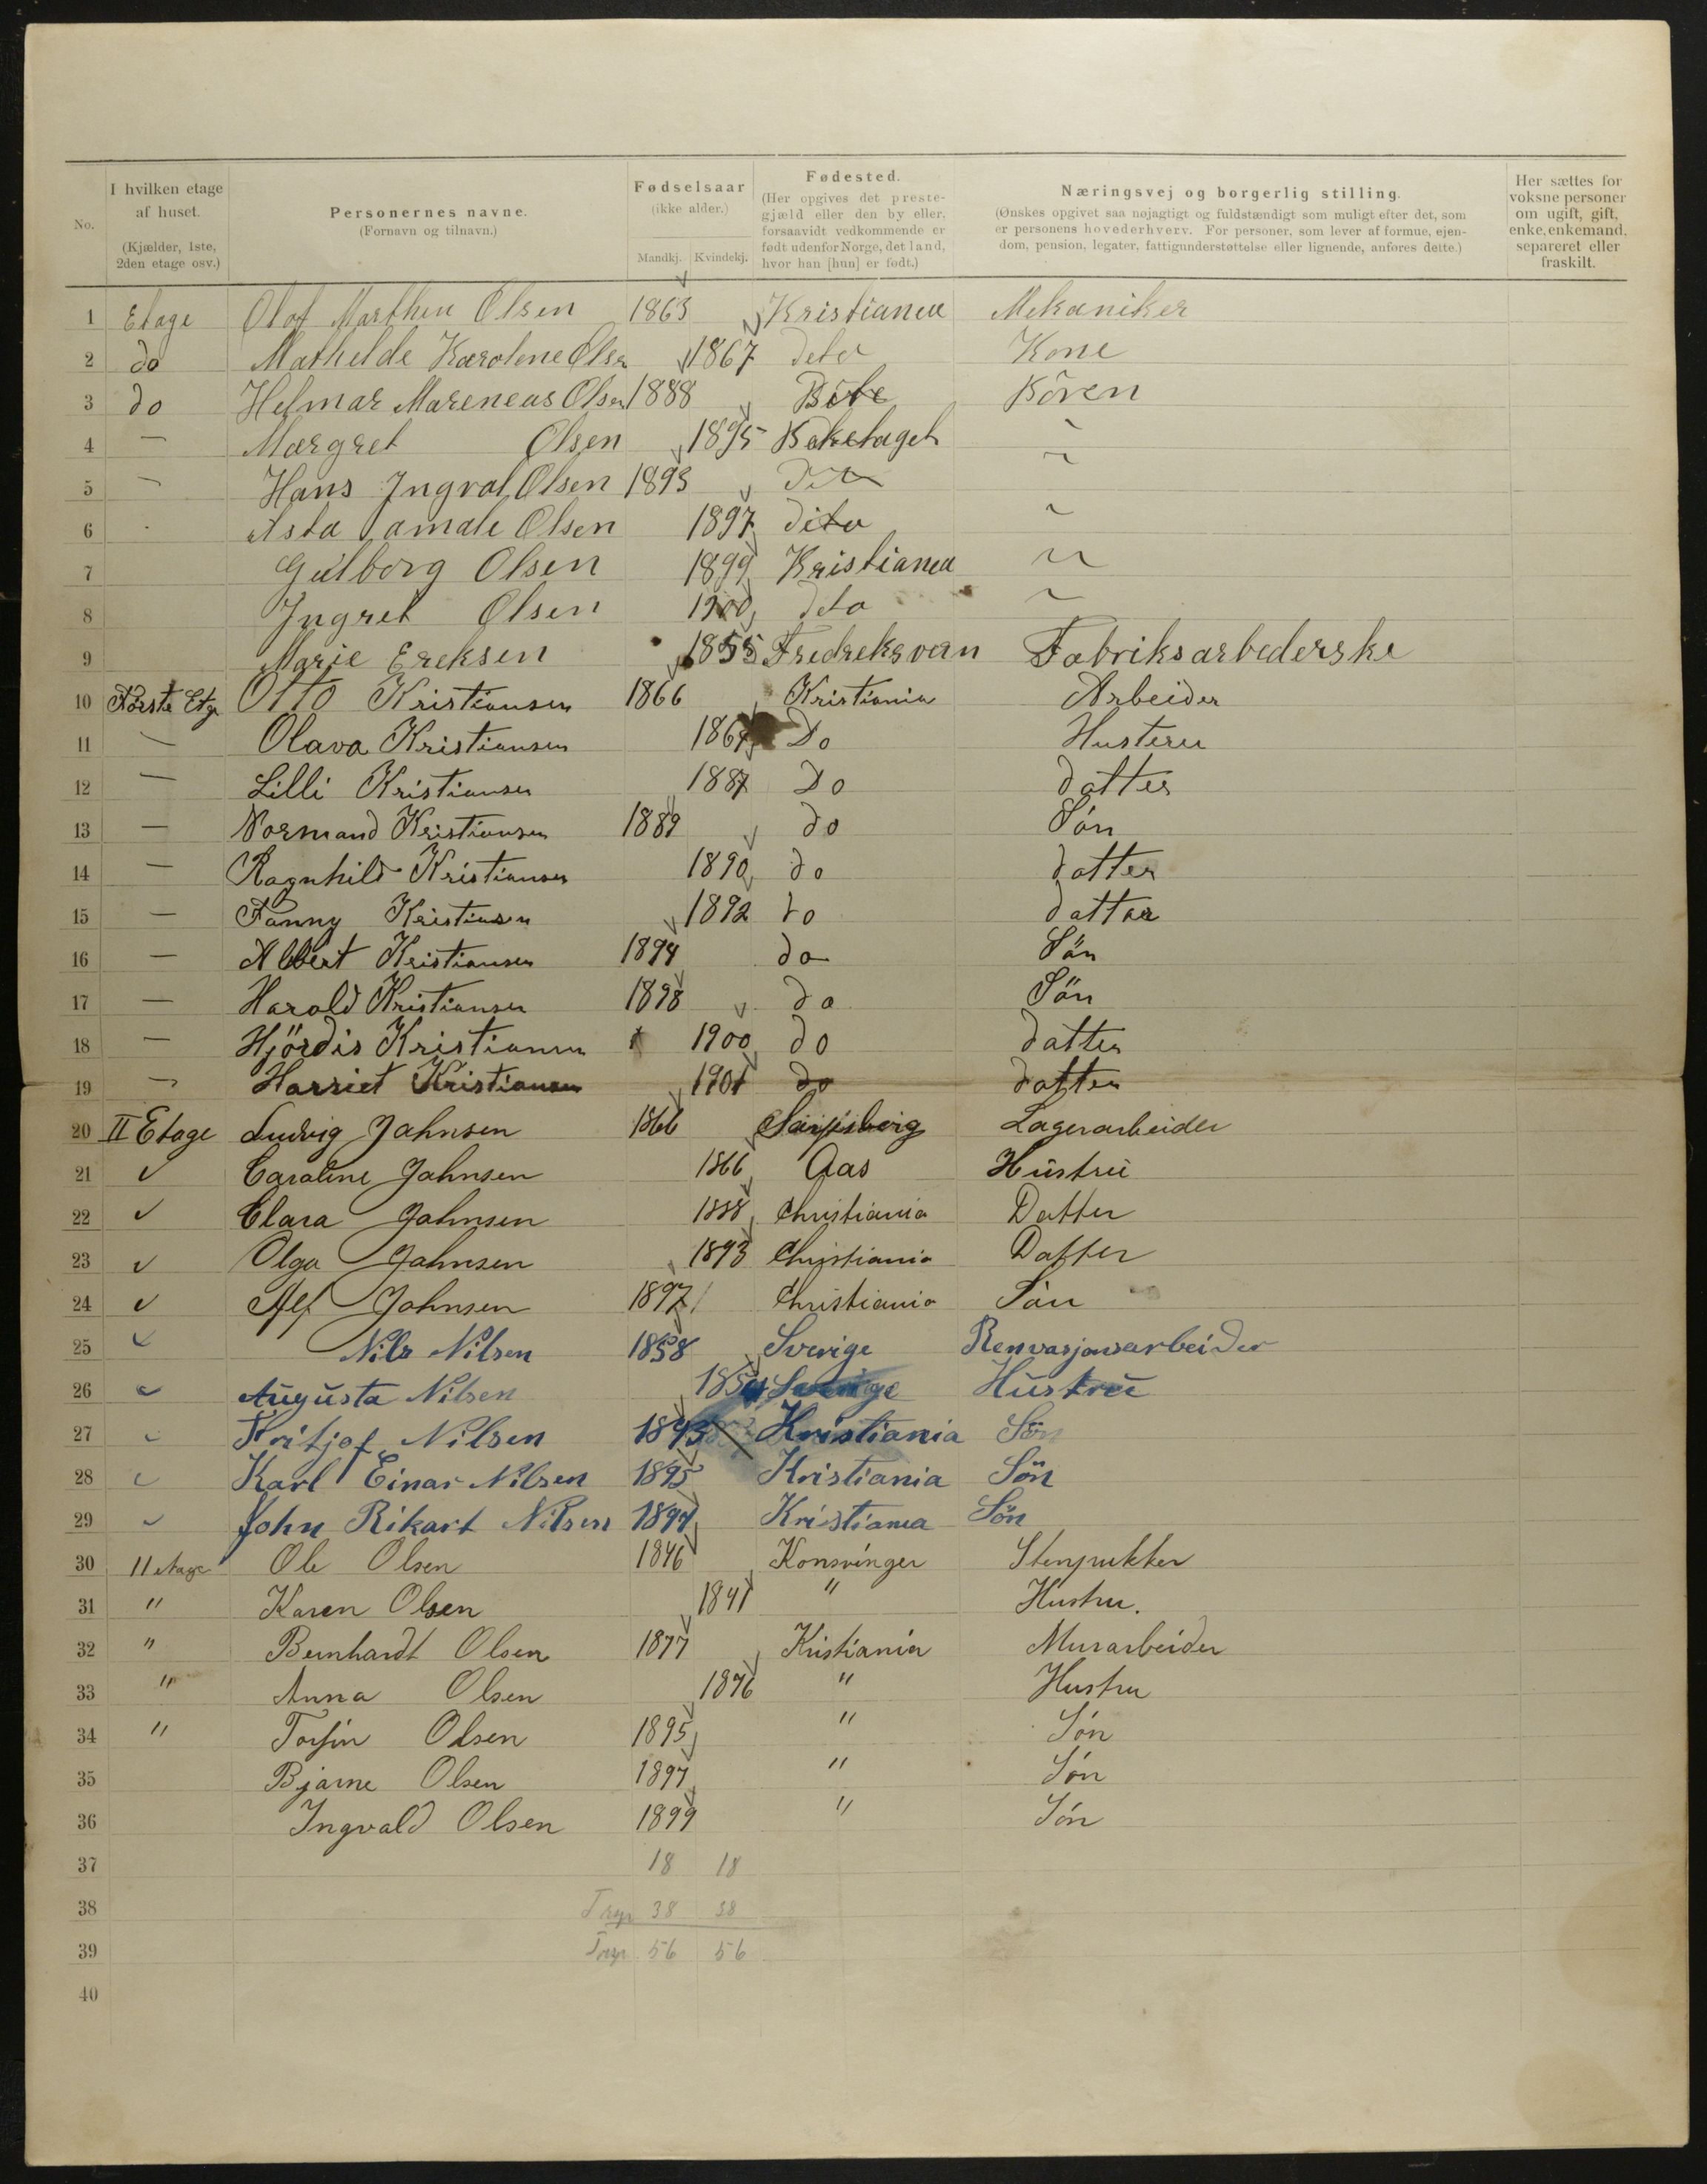 No.
I hvilken etage af huset. (Kjælder, 1ste, 2den etage osv.)
Personernes navne. (Fornavn og tilnavn.)
Fødselsaar (ikke alder.) Mandkj. Kvindekj.
Fødested. (Her opgives det prestegjæld eller den by eller, forsaavidt vedkommende er født udenfor Norge, det land, hvor han [hun] er født.)
Næringsvej og borgerlig stilling. (Ønskes opgivet saa nøjagtigt og fuldstændigt som muligt efter det, som er personens hovederhverv. For personer, som lever af formue, ejendom, pension, legater, fattigunderstøttelse eller lignende, anføres dette.)
Her sættes for voksne personer om ugift, gift, enke, enkemand, separeret eller fraskilt.
1 Etage Olaf Marthin Olsen 1863 Kristiania Mekaniker
2 do Mathelde Karolene Olsen 1867 deto Kone
3 do Helmar Mareneus Olsen 1888 Kone Bören
4 — Margret Olsen 1895
5 — Hans Ingval Olsen 1893
6 Asta Olsen 1897 dito ~
7 Gulborg Olsen 1899 Kristiania ~
8 Ingret Olsen 1900 deto ~
9 Marie Ereksen 1855 Fredreksvern Fabriksarbederske
10 Første Etg Otto Kristiansen 1866 Kristiania Arbeider
11 — Olava Kristiansen 1867 Do Husteru
12 — Lilli Kristiansen 1887 Do datter
13 — Normand Kristiansen 1889 do Són
14 — Ragnhild Kristiansen 1890 do datter
15 — Fanny Kristiansen 1892 do datter
16 — Albert Kristiansen 1894 do Sön
17 — Harald Kristiansen 1898 do Sön
18 — Hjördis Kristiansen 1900 do datter
19 — Harriet Kristiansen 1901 do datter
20 II Etage Ludvig Johnsen 1866 Sarpsborg Lagerarbeider
21 Caroline Johnsen 1866 Aas Hustru
22 Clara Johnsen 1888 Christiania Datter
23 Olga Johnsen 1893 Christiania Datter
24 Alf Johnsen 1897 Christiania Sön
25 Nils Nilsen 1858 Sverige Renvasjonsarbeider
26 Augusta Nilsen Sverige Hustru
27 Fritjof Nilsen 1893 Kristiania Sön
28 Karl Einar Nilsen 1895 Kristiania Sön
29 John Rikart Nilsen 1897 Kristiania Sön
30 11 etage Ole Olsen 1846 Konsvinger Stenpukker
31 " Karen Olsen 1841 " Hustru.
32 " Bernhardt Olsen 1877 Kristiania Murarbeider
33 " Anna Olsen 1876 " Hustru
34 " Torfin Olsen 1895 " Són
35 Bjarne Olsen 1897 " Són
36 Ingvald Olsen 1899 " Són
37 18 18
38 38 38
39 56 56
40